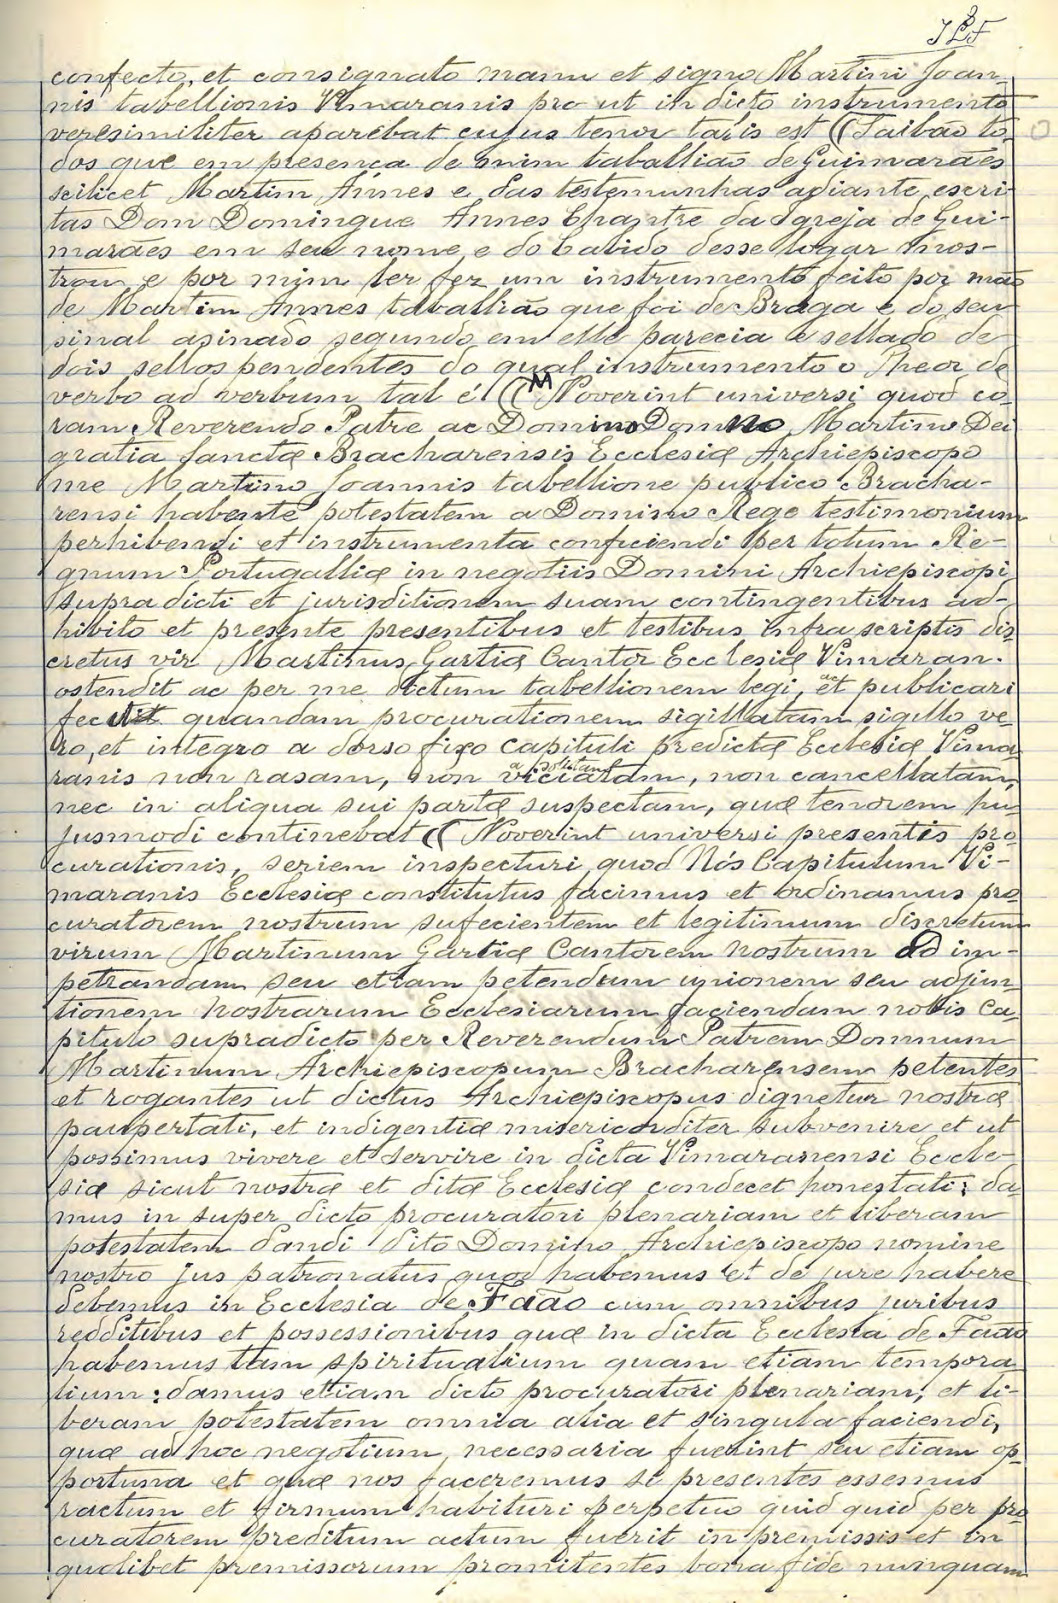 3
JLF
confecto, et consignato manu et signo Martini Joan-
nis tabellionis Vimaranis pro ut in dicto instrumento
veresimiliter aparebat cujus tenor talis est ((Saibão to-
dos que em presença de mim taballião de Guimarães
scilicet Martim Annes e das testemunhas adiante, escri-
tas Dom Domingue Annes Chantre da Igreja de Gui-
marães em seu nome e do Cabido desse logar mos-
trou e por mim ler fez um instrumento feito por mão
de Martim Annes taballião que foi de Braga e do seu
sinal asinado segundo em elle parecia e sellado de
dois sellos pendentes do qual instrumento o Theor de
verbo ad verbum tal é! (( Noverint universi quod co-
ram Reverendo Patre ac Domino Domno Martino Dei
gratia sanctæ Bracharensis Ecclesiæ Archiepiscopo
me Martino Joannis tabellione publico Bracha-
rensi habente potestatem a Domino Rege testimonium
perhibendi et instrumenta conficiendi per totum Re-
gnum Portugalliæ in negotiis Domini Archiepiscopi
supra dicti et jurisditionem suam contingentibus ad-
hibito et presente presentibus et testibus infra scriptis dis-
cretus vir Martinus Gartiæ Cantor Ecclesiæ Vimaran.
ostendit ac per me dictum tabellionem legi, et ac publicari
fecit quandam procurationem sigillatam sigillo ve-
ro, et integro a dorso fixo capituli predictæ Ecclesiæ Vima-
ranis non rasam, non viciatam, non cancellatam,
nec in aliqua sui partæ suspectam, quæ tenorem hu-
jusmodi continebat (( Noverint universi presentis pro-
curationis, seriem inspecturi quod Nós Capitulum Vi-
maranis Ecclesiæ constitutus facimus et ordinamus pro-
curatorem nostrum sufecientem et legitimum discretum
virum Martinum Gartiæ Cantorem nostrum ad im-
petrandam seu etiam petendum unionem seu adjun-
tionem nostrarum Ecclesiarum faciendam nobis Ca-
pitulo supradicto per Reverendum Patrem Domnum
Martinum Archiepiscopum Bracharensem petentes
et rogantes ut dictus Archiepiscopus dignetur nostræ
paupertati, et indigentiæ misericorditer subvenire et ut
possimus vivere et servire in dicta Vimaranensi Eccle-
siæ sicut nostræ et ditæ Ecclesiæ condecet honestati; da-
mus in super dicto procuratori plenariam et liberam
potestatem dandi dito Domino Archiepiscopo nomine
nostro jus patronatus quod habemus et de jure habere
debemus in Ecclesia de Faão cum omnibus juribus
redditibus et possessionibus quæ in dicta Ecclesia de Faão
habemus tam spiritualium quam etiam tempora-
lium: damus etiam dicto procuratori plenariam, et li-
beram potestatem omnia alia et singula faciendi,
quæ ad hoc negotium, necessaria fuerint seu etiam op-
portuna et quæ nos faceremus si presentes essemus
ractum et firmum habituri perpetuo quid quid per pro-
curatorem preditum actum fuerit in premissis et in
quolibet premissorum promitentes bona fide nunquam